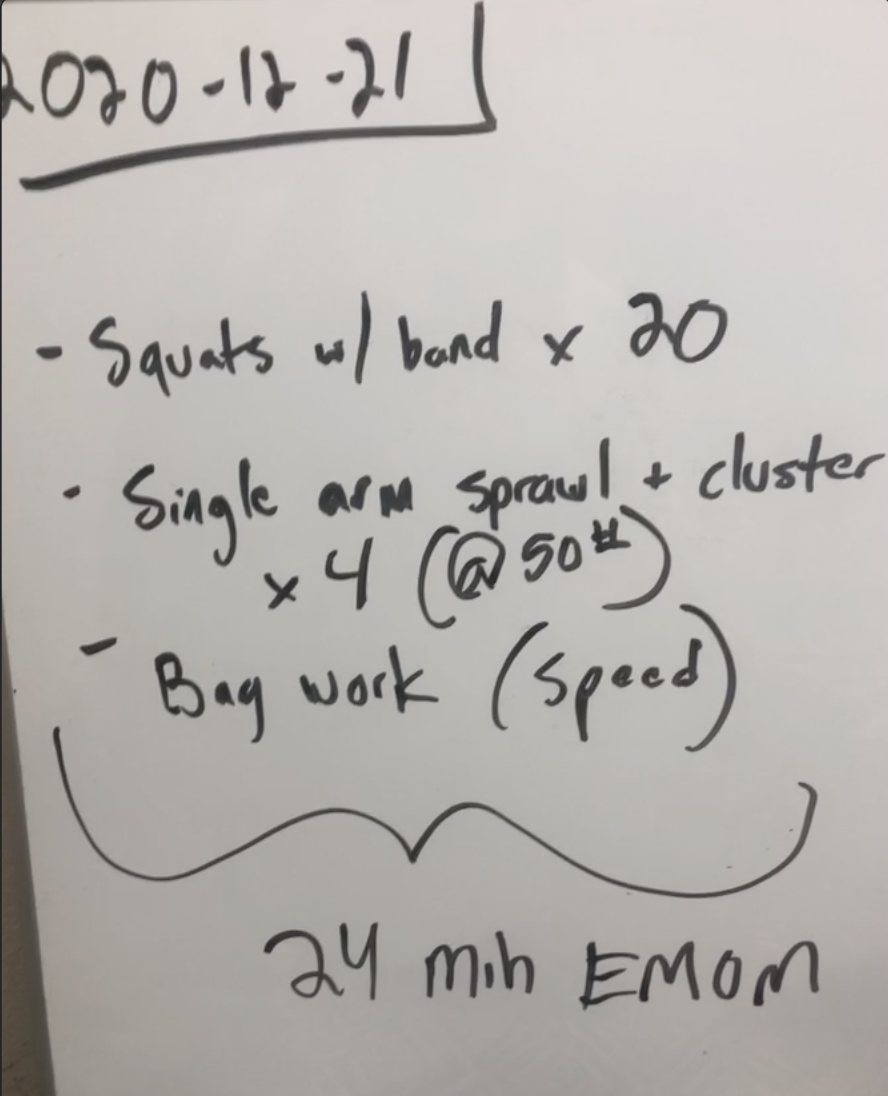 2020-12-21
- Squats w/ band x 20
- Single arm sprawl + cluster
x 4 (@ 50#)
- Bag work (speed)
24 min EMOM